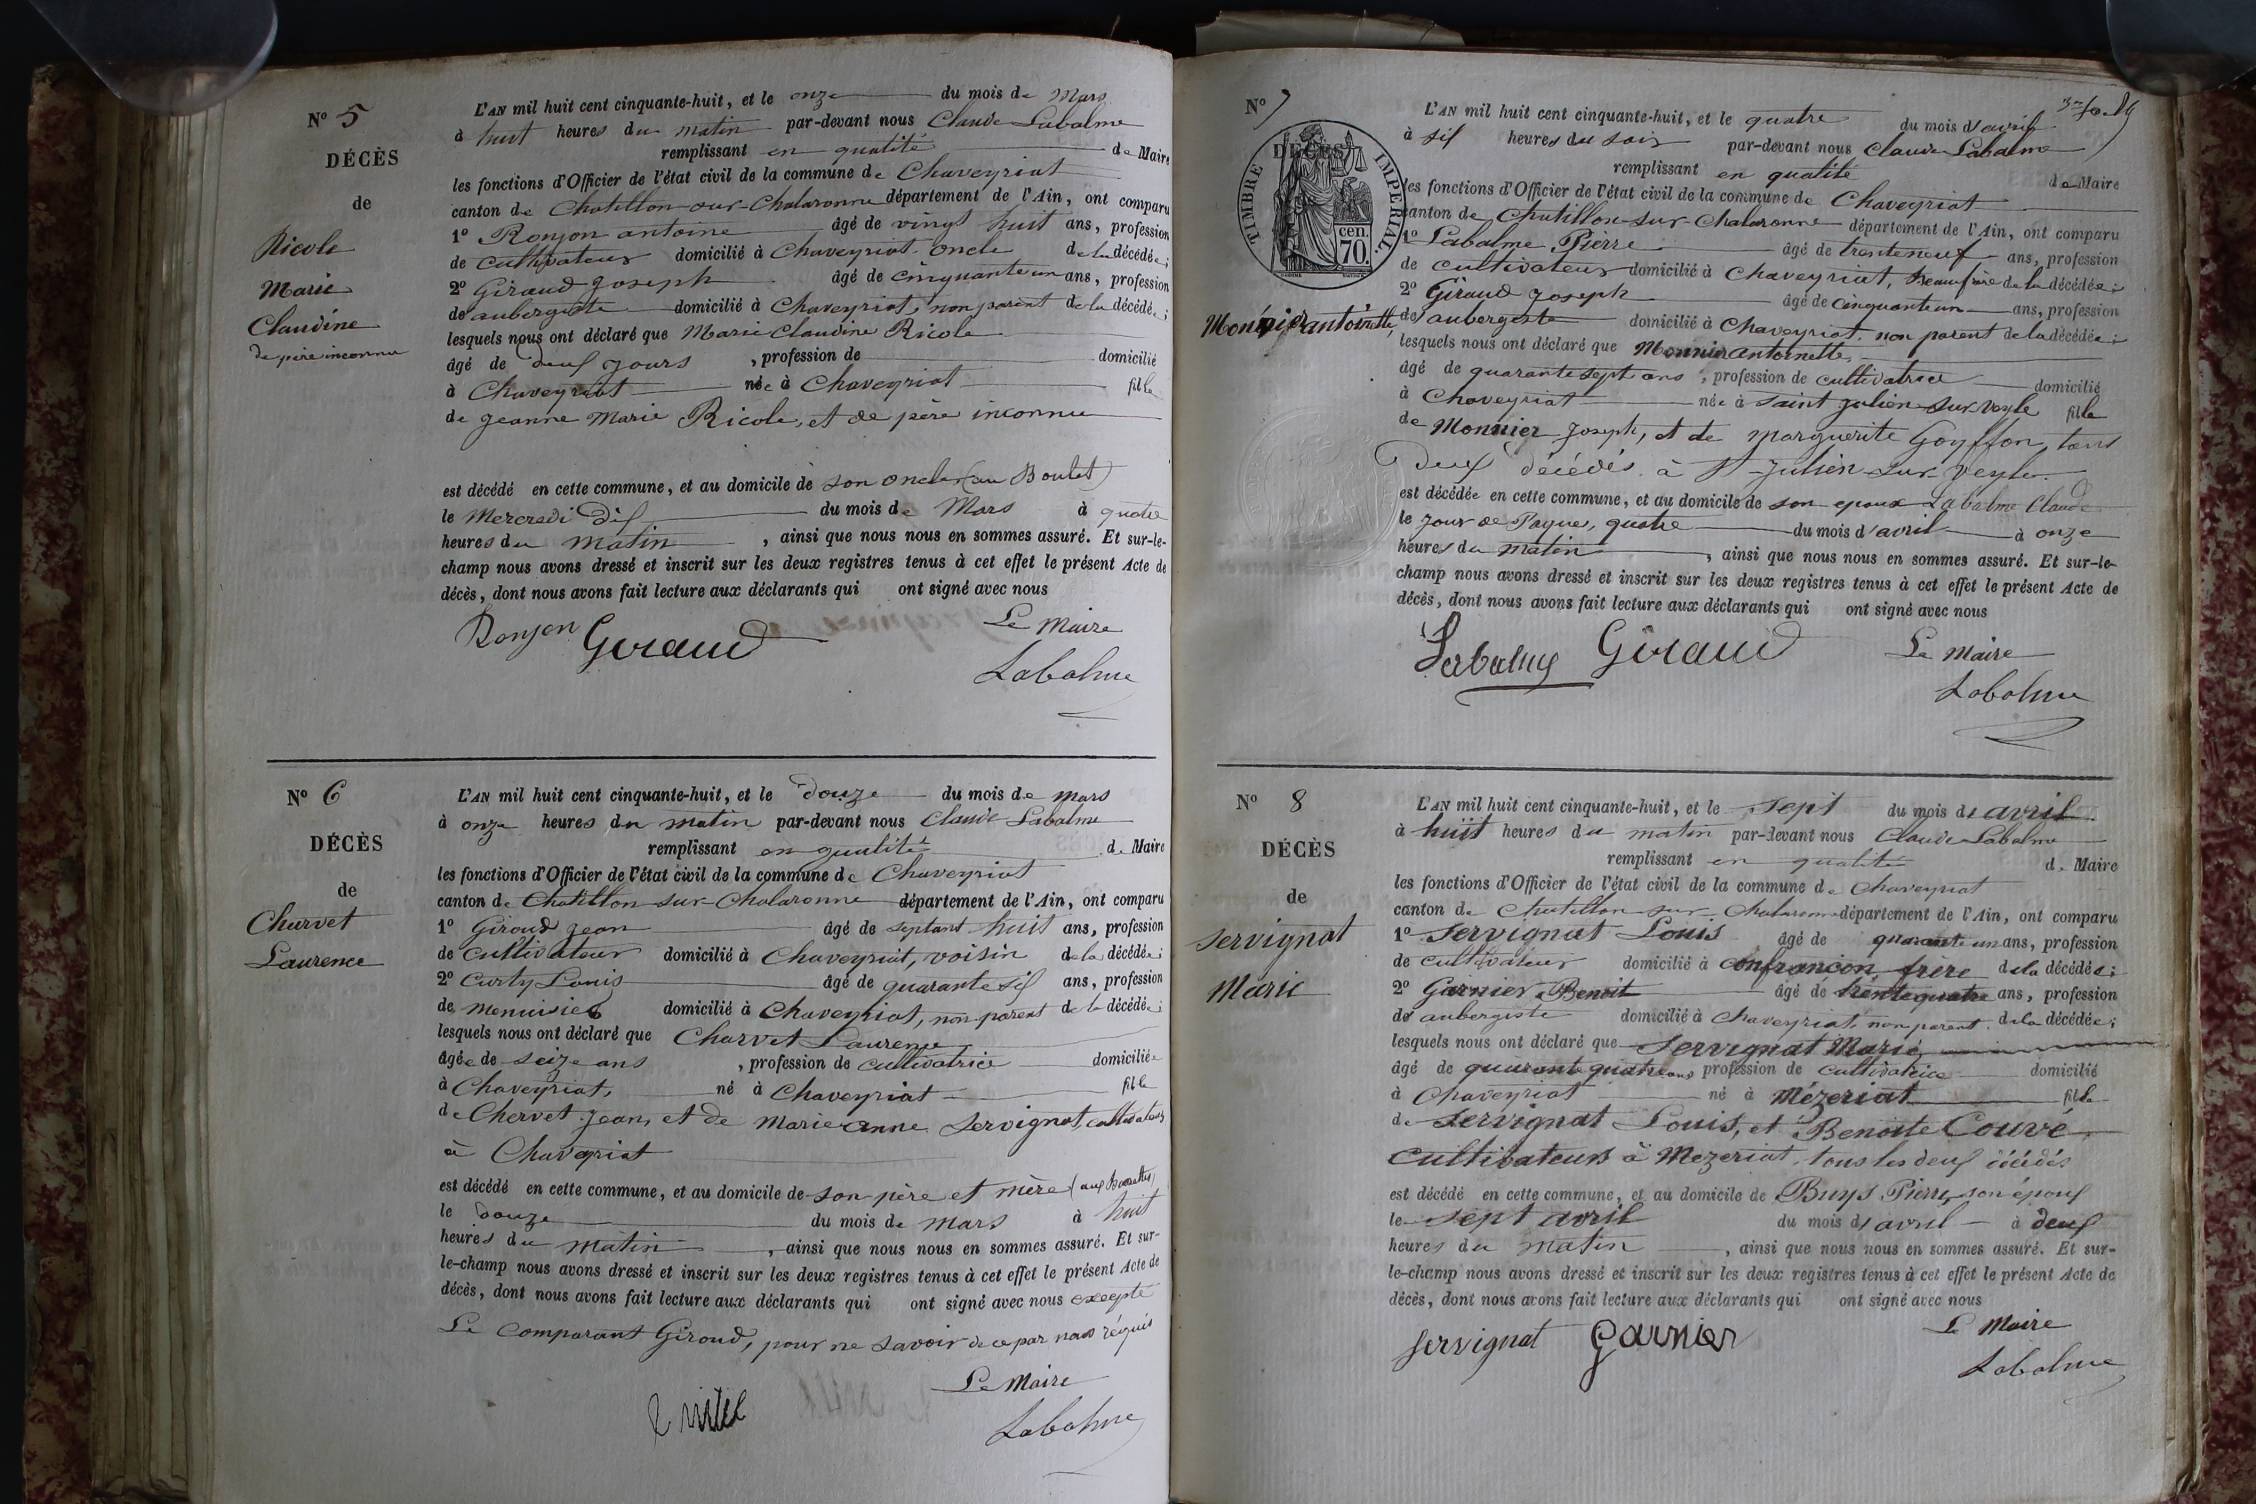 N° 5
DÉCÈS
de
Ricole
Marie
Claudine
de père inconnu
L'AN mil huit cent cinquante-huit, et le onze du mois de Mars
à huit heures du matin par-devant nous Claude Labalme
remplissant en qualité de Maire
les fonctions d'Officier de l'état civil de la commune de Chaveyriat
canton de Chatillon-sur-Chalaronne département de l'Ain, ont comparu
1° Ronjon antoine âgé de vingt huit ans, profession
de cultivateur domicilié à Chaveyriat oncle de la décédée;
2° Giraud Joseph âgé de cinquante un ans, profession
de aubergiste domicilié à Chaveyriat, non parent de la décédée;
lesquels nous ont déclaré que Marie Claudine Ricole
âgé de deux jours, profession de domicilié
à Chaveyriat née à Chaveyriat fille
de Jeanne Marie Ricole, et de père inconnu
est décédé en cette commune, et au domicile de son oncle (au Boulet)
le Mercredi dix du mois de Mars à quatre
heures du matin, ainsi que nous nous en sommes assuré. Et sur-le-
champ nous avons dressé et inscrit sur les deux registres tenus à cet effet le présent Acte de
décès, dont nous avons fait lecture aux déclarants qui ont signé avec nous
Ronjon Giraud Le Maire
Labalme
N° 6
DÉCÈS
de
Charvet
Laurence
L'AN mil huit cent cinquante-huit, et le douze du mois de mars
à onze heures du matin par-devant nous Claude Labalme
remplissant en qualité de Maire
les fonctions d'Officier de l'état civil de la commune de Chaveyriat
canton de Chatillon-sur-Chalaronne département de l'Ain, ont comparu
1° Giroud Jean âgé de septant huit ans, profession
de cultivateur domicilié à Chaveyriat, voisin de la décédée;
2° Curty Louis âgé de quarante six ans, profession
de menuisier domicilié à Chaveyriat, non parent de la décédée;
lesquels nous ont déclaré que Charvet Laurence
âgée de seize ans, profession de cultivatrice domiciliée
à Chaveyriat, né à Chaveyriat fille
de Chervet Jean, et de Marie anne Servignat, cultivateurs
à Chaveyriat
est décédé en cette commune, et au domicile de son père et mère
le douze du mois de mars à huit
heures du matin, ainsi que nous nous en sommes assuré. Et sur-
le-champ nous avons dressé et inscrit sur les deux registres tenus à cet effet le présent Acte de
décès, dont nous avons fait lecture aux déclarants qui ont signé avec nous excepté
Le comparant Giroud, pour ne savoir de ce par nous réquis
Le Maire
Labalme
N° 7
DÉCÈS
TIMBRE IMPÉRIAL.
70. cen.
Monnier antoinette
L'AN mil huit cent cinquante-huit, et le quatre du mois d'avril
à six heures du soir par-devant nous Claude Labalme
remplissant en qualité de Maire
les fonctions d'Officier de l'état civil de la commune de Chaveyriat
canton de Chatillon-sur-Chalaronne département de l'Ain, ont comparu
1° Labalme Pierre âgé de trente neuf ans, profession
de cultivateur domicilié à Chaveyriat, beaufrère de la décédée;
2° Giraud Joseph âgé de cinquante un ans, profession
de aubergiste domicilié à Chaveyriat. non parent de la décédée;
lesquels nous ont déclaré que Monnier antoinette,
âgé de quarante sept ans, profession de cultivatrice domicilié
à Chaveyriat née à saint Julien sur Veyle fille
de Monnier Joseph, et de Marguerite Goyffon, tous
deux décédés à St Julien-sur-Veyle.
est décédée en cette commune, et au domicile de son epoux Labalme Claude
le jour de Paques, quatre du mois d'avril à onze
heures du matin, ainsi que nous nous en sommes assuré. Et sur-le-
champ nous avons dressé et inscrit sur les deux registres tenus à cet effet le présent Acte de
décès, dont nous avons fait lecture aux déclarants qui ont signé avec nous
Labalme Giraud Le Maire
Labalme
N° 8
DÉCÈS
de
Servignat
Marie
L'AN mil huit cent cinquante-huit, et le sept du mois d'avril
à huit heures du matin par-devant nous Claude Labalme
remplissant en qualité de Maire
les fonctions d'Officier de l'état civil de la commune de Chaveyriat
canton de Chatillon-sur-Chalaronne département de l'Ain, ont comparu
1° Servignat Louis âgé de quarante un ans, profession
de cultivateur domicilié à Confrancon, frère de la décédée;
2° Garnier Benoit âgé de trente quatre ans, profession
de aubergiste domicilié à Chaveyriat, non parent de la décédée;
lesquels nous ont déclaré que Servignat Marie,
âgé de quarante quatre ans, profession de cultivatrice domicilié
à Chaveyriat né à Mézeriat fille
de Servignat Louis, et Benoite Couvé,
cultivateurs à Mezeriat, tous les deux décédés
est décédé en cette commune, et au domicile de Buys Pierre, son époux
le sept avril du mois d'avril à deux
heures du matin, ainsi que nous nous en sommes assuré. Et sur-
le-champ nous avons dressé et inscrit sur les deux registres tenus à cet effet le présent Acte de
décès, dont nous avons fait lecture aux déclarants qui ont signé avec nous
Servignat Garnier Le Maire
Labalme